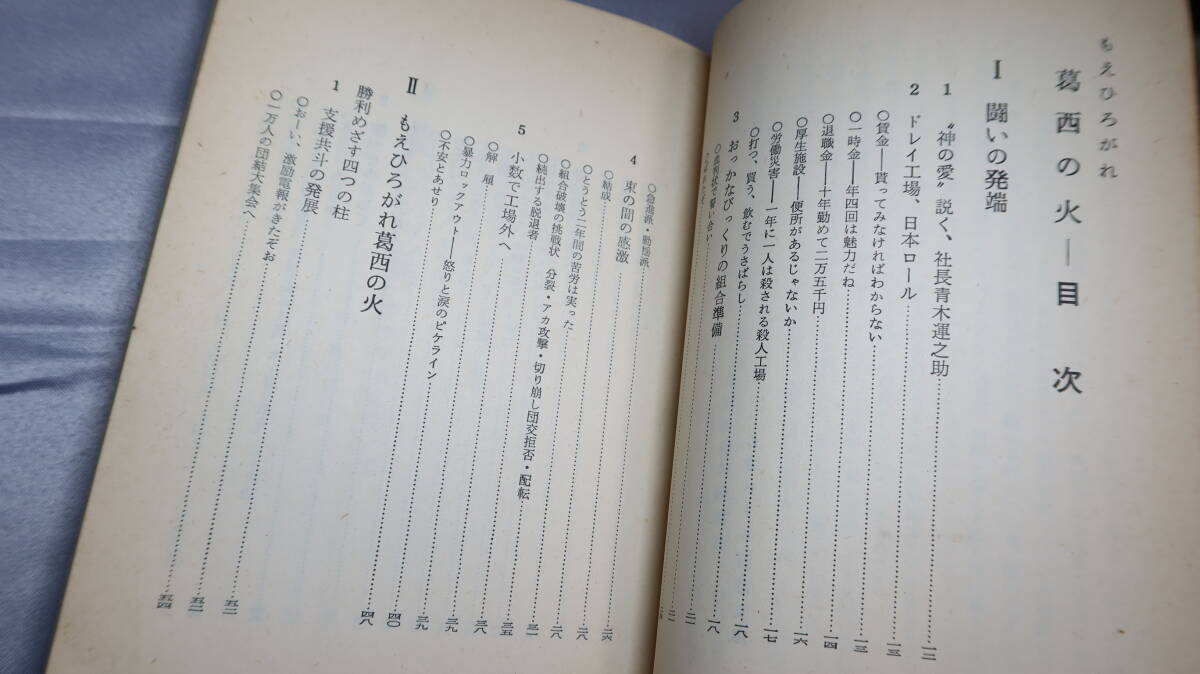 もえひろがれ
葛西の火―目次
Ⅰ 闘いの発端
1 “神の愛”説く、社長青木運之助……一二
2 ドレイ工場、日本ロール……一三
○賃金――貰ってみなければわからない……一三
○一時金――年四回は魅力だね……一四
○退職金――十年勤めて二万五千円……一六
○厚生施設――便所があるじゃないか……一七
○労働災害――一年に一人は殺される殺人工場……一八
○打つ、買う、飲むでうさばらし……一八
3 おっかなびっくりの組合準備……二一
○急進派・動揺派……
4 束の間の感激……二六
○結成……二八
○とうとう二年間の苦労は実った……二八
○組合破壊の挑戦状 分裂・アカ攻撃・切り崩し団交拒否・配転……三一
○続出する脱退者……三五
5 小数で工場外へ……三八
○解雇……三九
○暴力ロックアウト――怒りと涙のピケライン……三九
○不安とあせり……四〇
Ⅱ もえひろがれ葛西の火……四八
勝利めざす四つの柱
1 支援共斗の発展……五二
○おーい、激励電報がきたぞお……五二
○一万人の団結大集会へ……五四